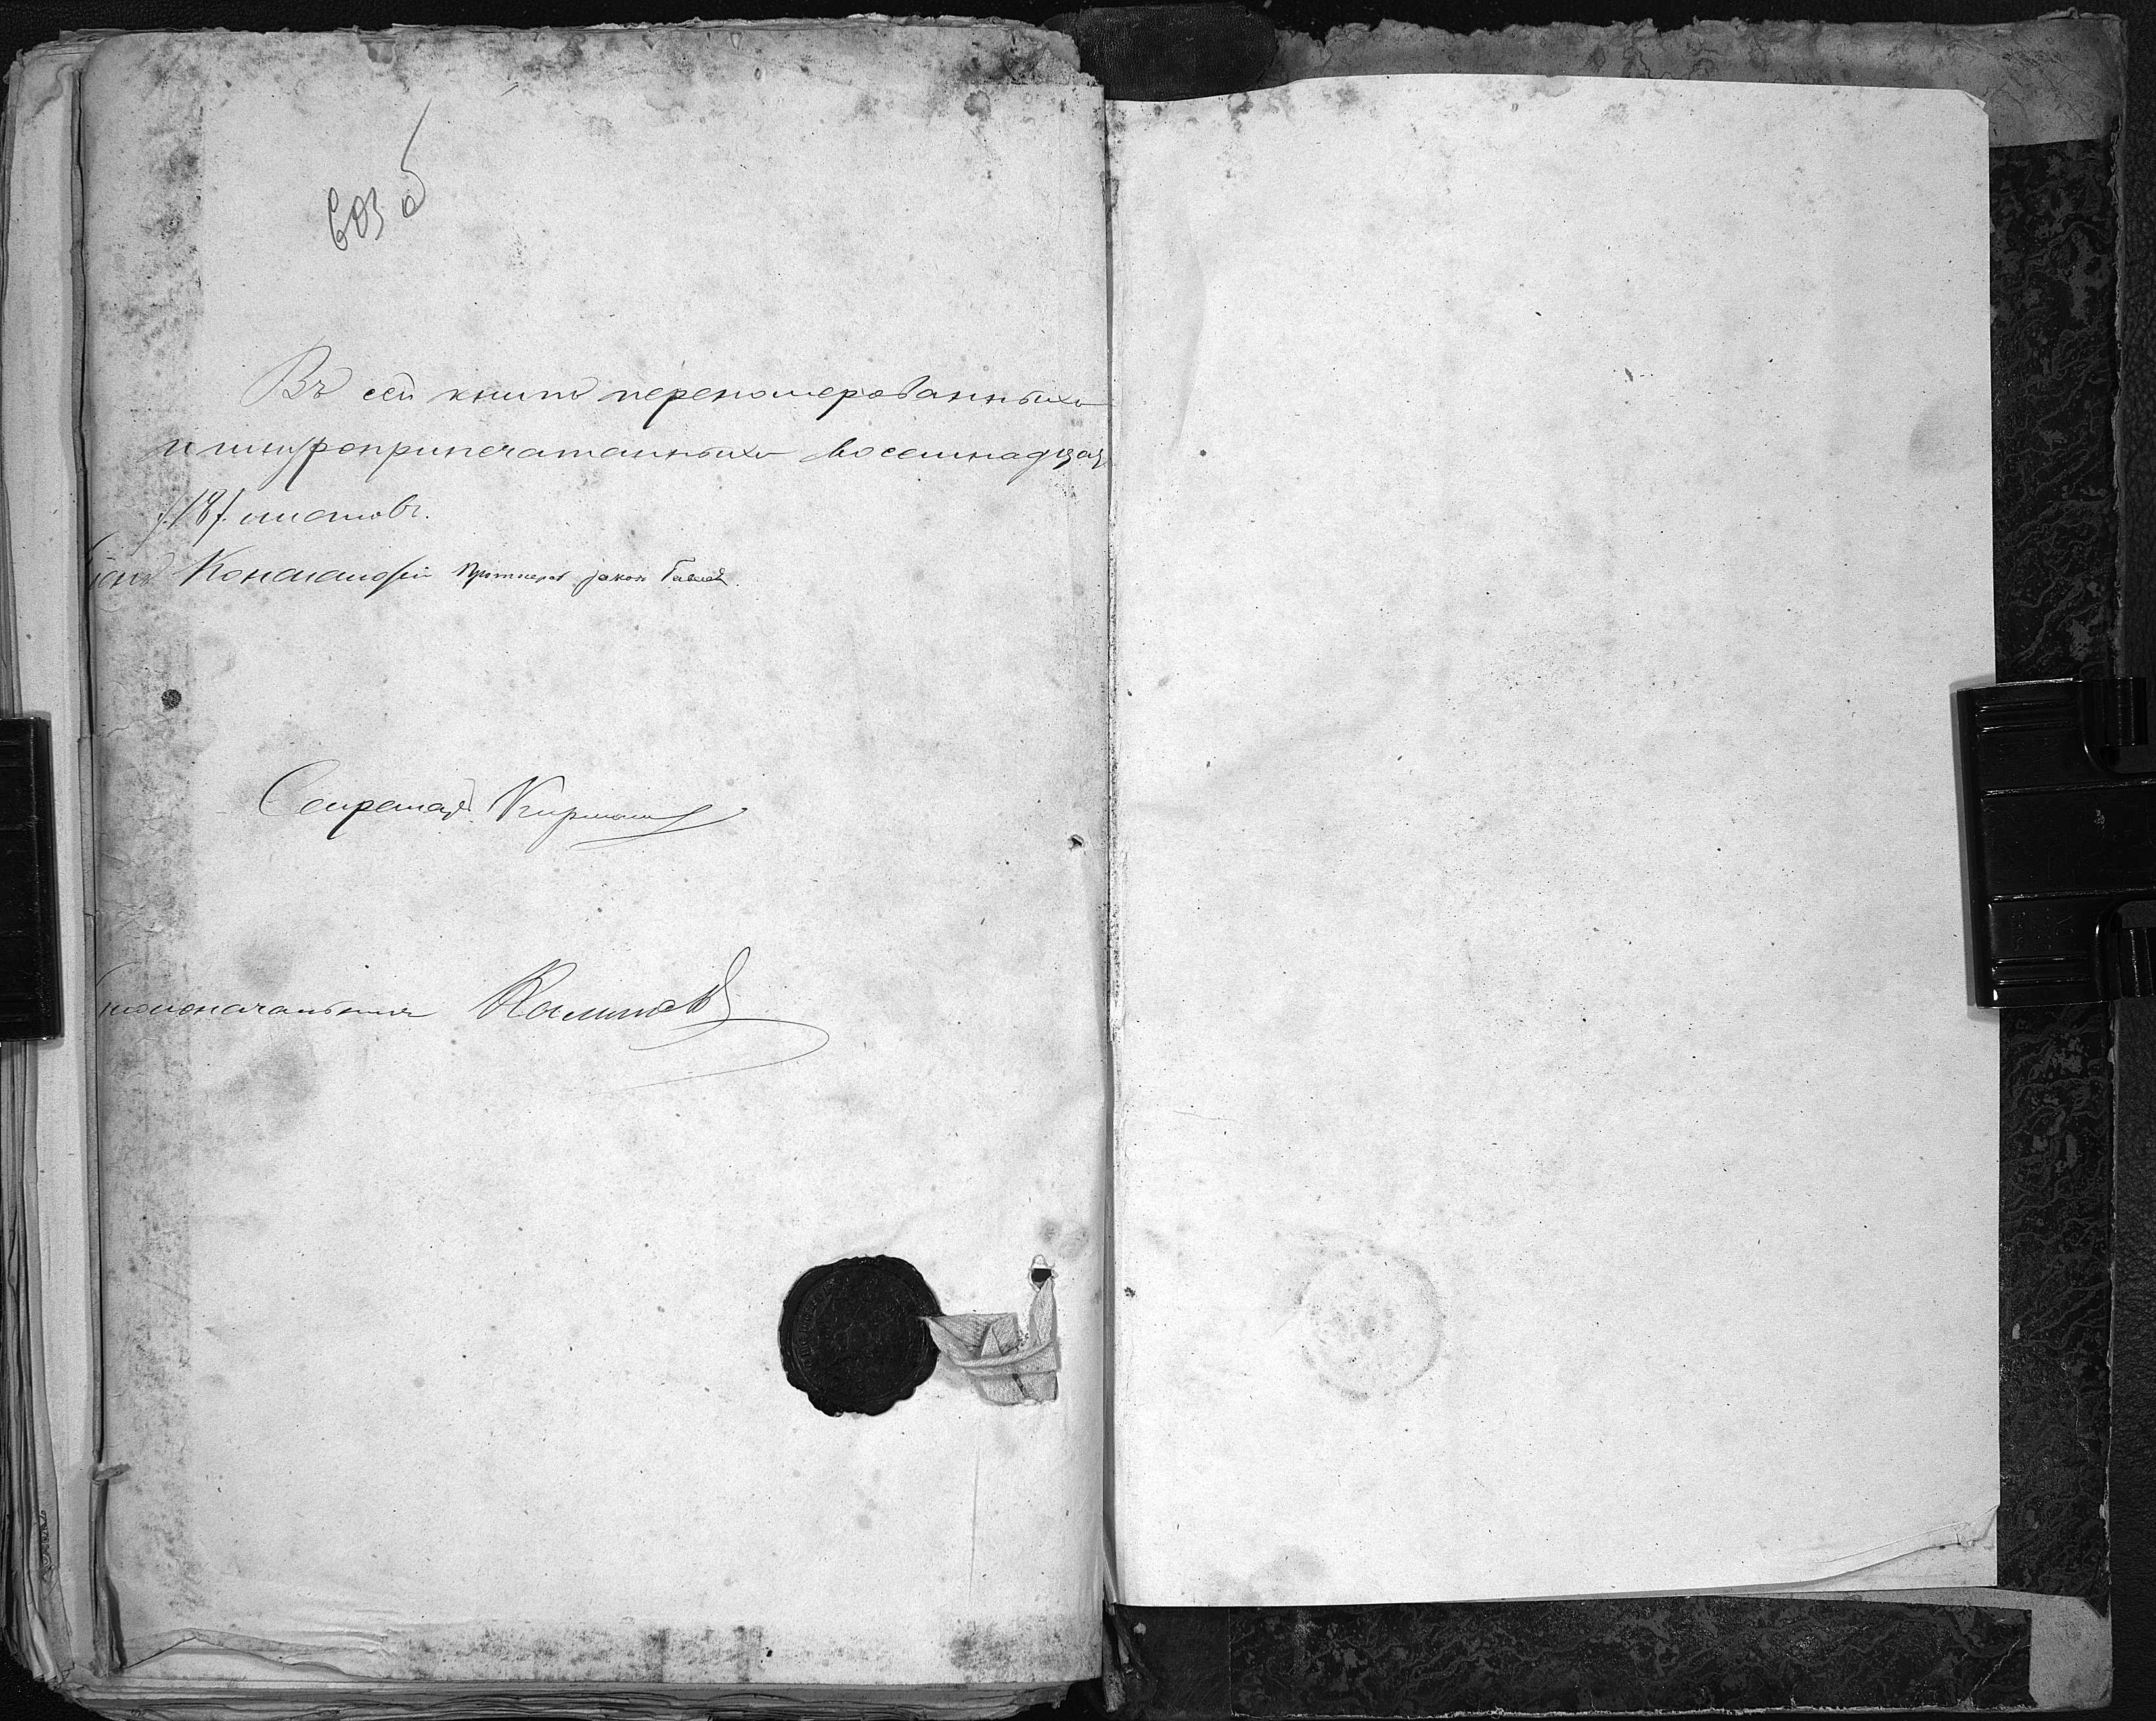 603 б
Въ сей книгѣ переномерованныхъ
и шнуроприпечатанныхъ восемнадцат
/18/ листовъ.
Консисторіи Протоіерей Іаковъ
Секретарь
толоначальникъ